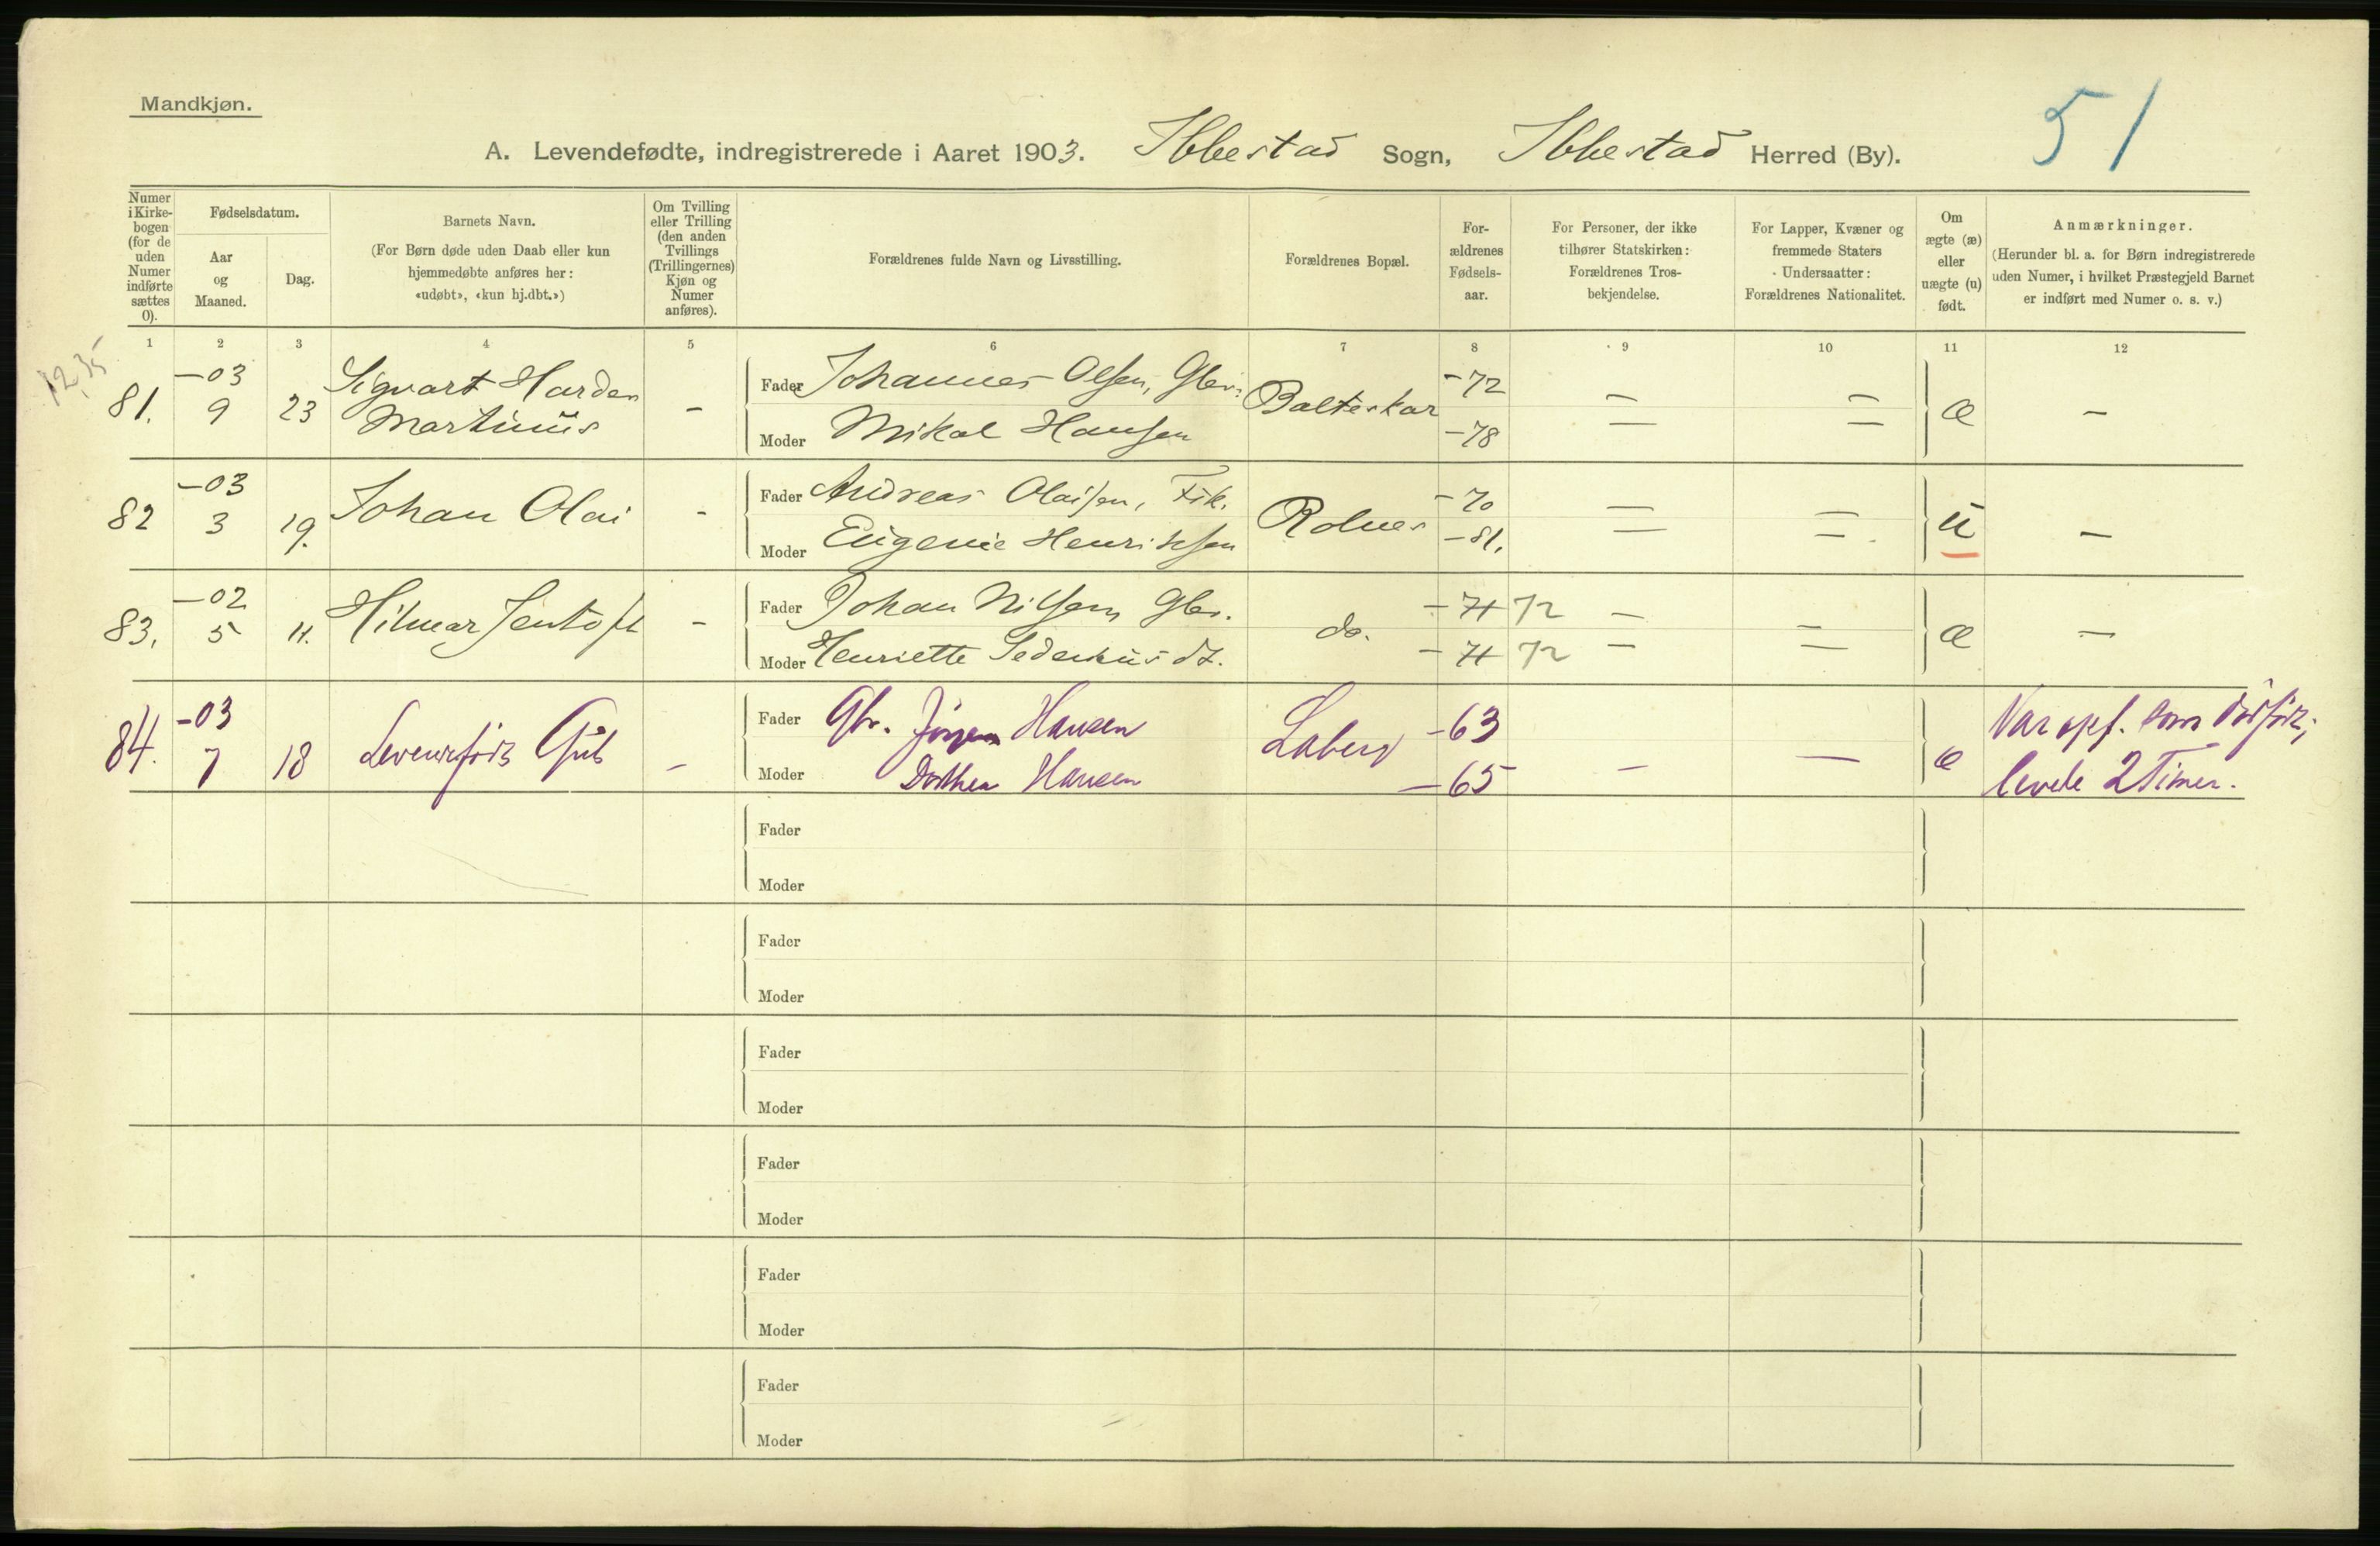 Mandkjøn.
51
A. Levendefødte, indregistrerede i Aaret 1903. Ibbestad Sogn, Ibbestad Herred (By).
Numer i Kirkebogen (for de uden Numer indførte sættes 0).
Fødselsdatum.
Aar og Maaned.
Dag.
Barnets Navn.
(For Børn døde uden Daab eller kun
hjemmedøbte anføres her:
«udøbt», «kun hj.dbt.»)
Om Tvilling
eller Trilling
(den anden
Tvillings
(Trillingernes)
Kjøn og
Numer
anføres).
Forældrenes fulde Navn og Livsstilling.
Forældrenes Bopæl.
For-
ældrenes
Fødsels-
aar.
For Personer, der ikke
tilhører Statskirken:
Forældrenes Tros-
bekjendelse.
For Lapper, Kvæner og
fremmede Staters
Undersaatter:
Forældrenes Nationalitet.
Om
ægte (æ)
eller
uægte (u)
født.
Anmærkninger.
(Herunder bl. a. for Børn indregistrerede
uden Numer, i hvilket Præstegjeld Barnet
er indført med Numer o. s. v.)
1 2 3 4 5 6 7 8 9 10 11 12
1235
81. -03 9 23 Sigvart Harder Martinus - Fader Johannes Olsen, Gbr. Balteskar -72 — — æ —
Moder Mikal Hansen -78 — —
82 -03 3 19. Johan Olai - Fader Andreas Olaisen, Fisk. Rolnes -70 — — u —
Moder Eugenie Henriksen -81. — —
83. -02 5 11. Hilmar Jentoft - Fader Johan Nilsen Gbr. do. -71 72 — — æ —
Moder Henriette dt. -71 72 — —
84. -03 7 18 Levendefødt Gut - Fader Gbr. Jørgen Hansen Laberg -63 — — æ Var opf. som dødfødt;
Moder Dorthea Hansen -65 levede 2 Timer.
Fader
Moder
Fader
Moder
Fader
Moder
Fader
Moder
Fader
Moder
Fader
Moder